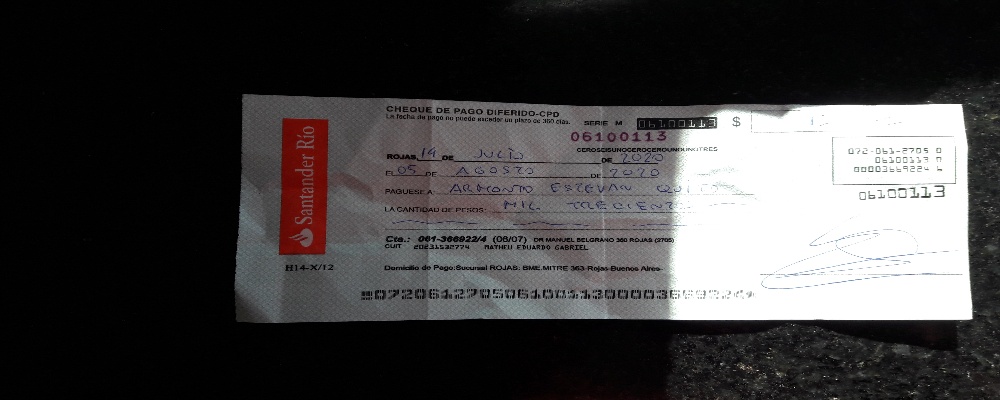 CHEQUE DE PAGO DIFERIDO-CPD
La fecha de pago no puede exceder un plazo de 360 días.
SERIE M 06100113 $
06100113
CEROSEISUNOCEROCEROUNOUNOTRES
ROJAS, 14 DE JULIO DE 2020
EL 05 DE AGOSTO DE 2020
PAGUESE A: ARMONTO ESTEVAN
LA CANTIDAD DE PESOS: MIL
Cta.: 061-366922/4 (06/07) DR MANUEL BELGRANO 360 ROJAS (2705)
CUIT 20231532774 MATHEU EDUARDO GABRIEL
Domicilio de Pago:Sucursal ROJAS: BME.MITRE 363-Rojas-Buenos Aires-
Santander Río
H14-X/12
072-061-2705 0
06100113 0
00003669224 6
06100113